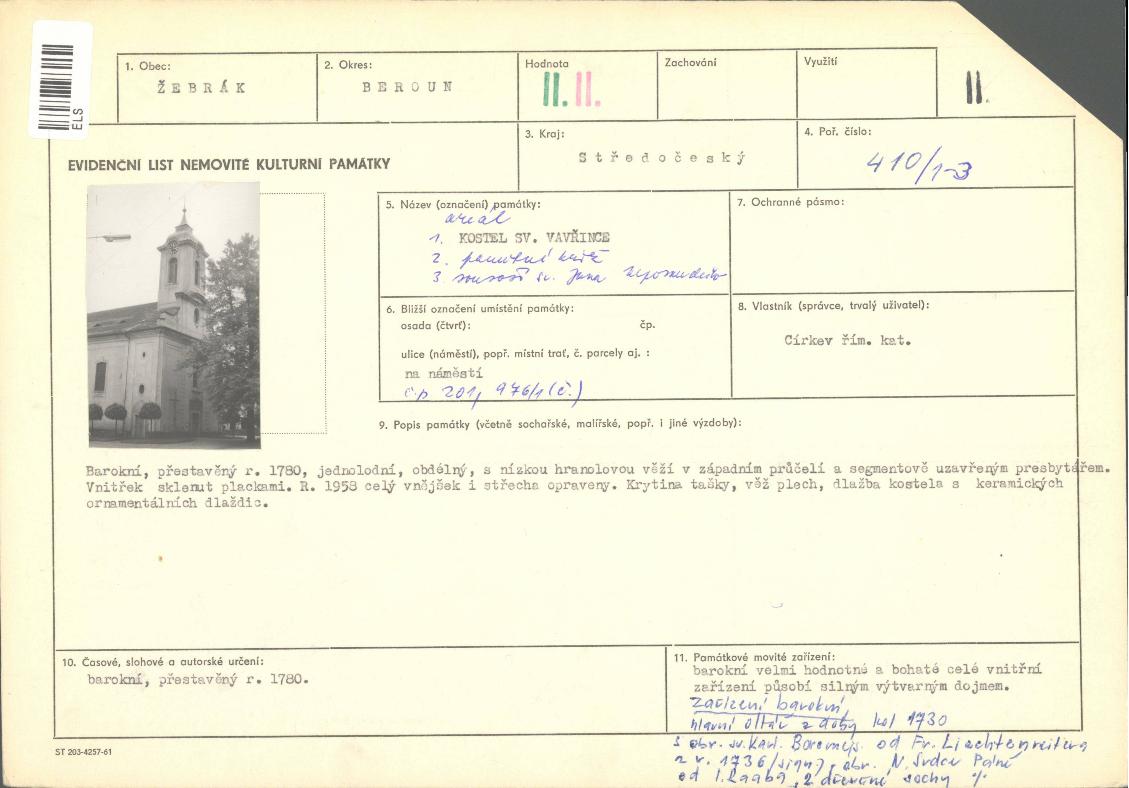 ELS
1. Obec:
ŽEBRÁK
2. Okres:
BEROUN
Hodnota
II. II.
Zachování
Využití
II.
EVIDENČNÍ LIST NEMOVITÉ KULTURNÍ PAMÁTKY
3. Kraj:
Středočeský
4. Poř. číslo:
410/1-3
5. Název (označení) památky:
areál
1. KOSTEL SV. VAVŘINCE
2. pamětní kříž
3. sousoší sv. Jana Nepomuckého
7. Ochranné pásmo:
6. Bližší označení umístění památky:
osada (čtvrť): čp.
ulice (náměstí), popř. místní trať, č. parcely aj. :
na náměstí
č.p 201, 976/1 (č.)
8. Vlastník (správce, trvalý uživatel):
Církev řím. kat.
9. Popis památky (včetně sochařské, malířské, popř. i jiné výzdoby):
Barokní, přestavěný r. 1780, jednolodní, obdélný, s nízkou hranolovou věží v západním průčelí a segmentově uzavřeným presbytářem.
Vnitřek sklenut plackami. R. 1958 celý vnějšek i střecha opraveny. Krytina tašky, věž plech, dlažba kostela s keramických
ornamentálních dlaždic.
10. Časové, slohové a autorské určení:
barokní, přestavěný r. 1780.
11. Památkové movité zařízení:
barokní velmi hodnotné a bohaté celé vnitřní
zařízení působí silným výtvarným dojmem.
Zařízení barokní,
hlavní oltář z doby kol 1730
s obr. sv. Karl. Boromejs. od Fr. Liechtenreitera
z r. 1736 /sign./, obr. N. Srdce Páně
od I. Raaba, 2 dřevěné sochy %
ST 203-4257-61